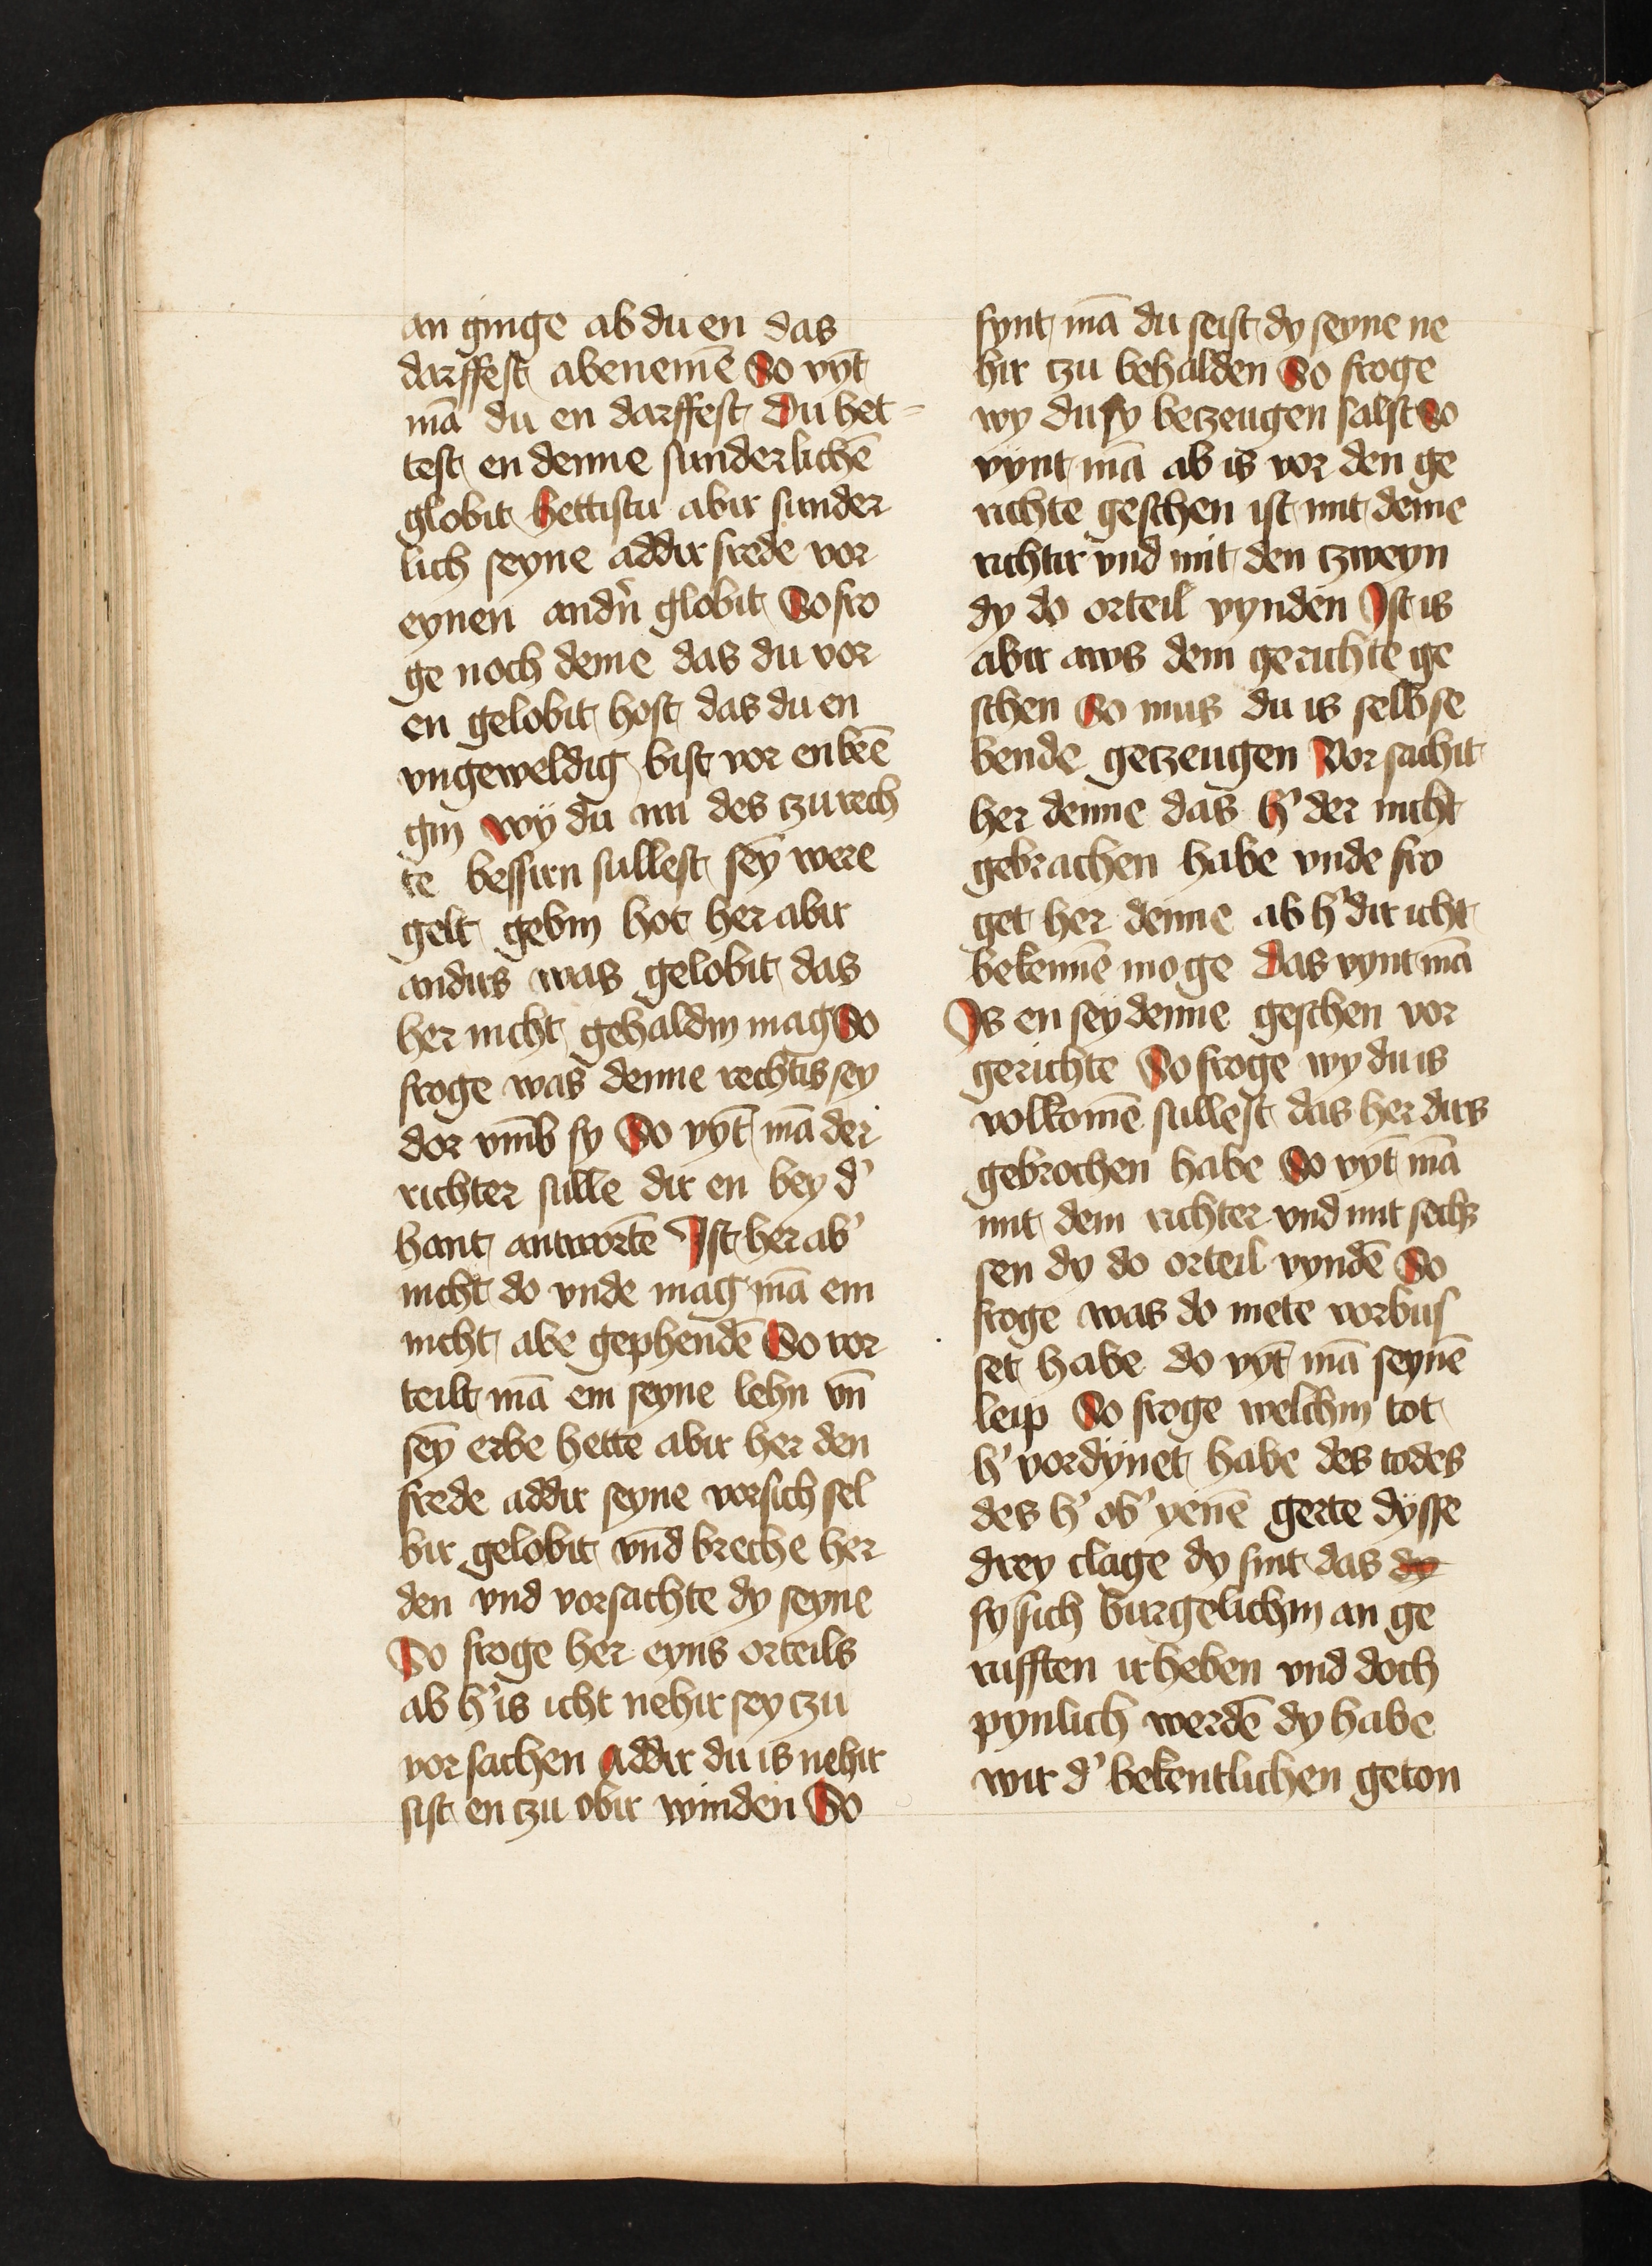 an ginge ab du en das
darffest abenemē So vyt
mā du en darffest Du het-
test en denne sunderlichē
globit hettistu abir sunder
lich seyne addir frede vor
eynen andn̄ globit So fro
ge noch deme das du vor
en gelobit host das du en
vngeweldig bist vor enkēē
gin wÿ du nu des czu rech
te bessirn sullest seȳ were
gelt gebin hot her abir
andirs was gelobit das
her nicht gehaldin mag So
froge was denne rechtis sey
dor vm̄b sy So vyt mā der
richter sulle dir en bey d'
hant antwortē Ist her ab'
nicht do vnde mag mā em
nicht abe gephendē So vor
teilt mā em seyne lehn vn̄
seȳ erbe hette abir her den
frede addir seyne vorsich sel
bir gelobit vn̄d breche her
den vnd vorsachte dy seyne
So froge her eyns orteils
ab h' is icht nehir sey czu
vorsachen Addir du is nehir
sist en czu obir winden So
synt mā du seist dy seyne ne
hir czu behalden So froge
wy du sy beczeugen salst So
vynt mā ab is vor den ge
richte geschen ist mit deme
richtir vnd mit den czweyn
dy do orteil vynden Ist is
abir aws dem gerichte ge
schen So mus du is selbse
bende geczeugen Vorsachit
her denne das h' der nicht
gebrachen habe vnde fro
get her denne ab h' dir icht
bekennē moge Das vynt mā
Is en sey denne geschen vor
gerichte So froge wy du is
volkomē sullest das her dirs
gebrochen habe So vyt mā
mit dem richter vnd mit sechs
sen dy do orteil vyndē So
froge was do mete vorbus
set habe do vyt mā seynē
leip So froge welchin tot
h' vordynet habe des todes
des h' ob' yenē gerte dysse
drey clage dy sint das dy
sy sich burgelichin an ge
rufften irheben vnd doch
pynlich werdē dy habe
wir d' bekentlichen geton